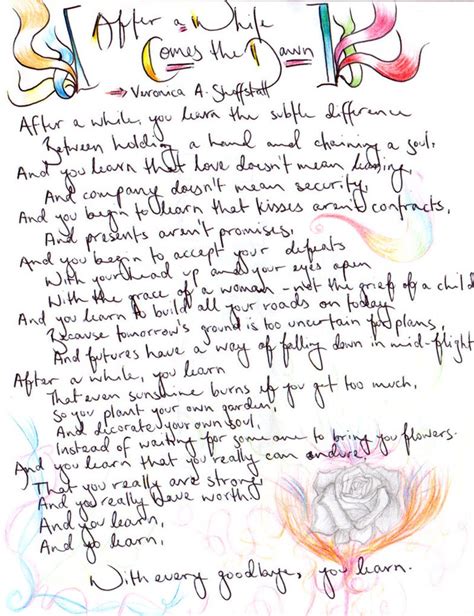 After a While
Comes the Dawn
→ Veronica A. Shoffstall
After a while, you learn the subtle difference
Between holding a hand and chaining a soul,
And you learn that love doesn't mean leaning,
And company doesn't mean security,
And you begin to learn that kisses aren't contracts,
And presents aren't promises,
And you begin to accept your defeats
With your head up and your eyes open
With the grace of a woman - not the grief of a child
And you learn to build all your roads on today
Because tomorrow's ground is too uncertain for plans,
And futures have a way of falling down in mid-flight
After a while, you learn
That even sunshine burns if you get too much,
So you plant your own garden,
And decorate your own soul,
Instead of waiting for someone to bring you flowers.
And you learn that you really can endure,
That you really are strong
And you really have worth
And you learn,
And yo learn,
With every goodbye, you learn.